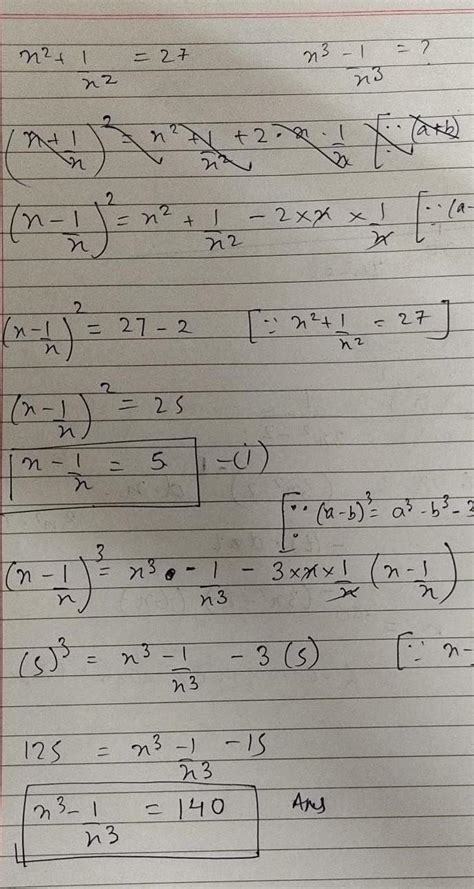 x² + 1/x² = 27    x³ - 1/x³ = ?
(x + 1/x)² = x² + 1/x² + 2 · x · 1/x [∵ (a+b)
(x - 1/x)² = x² + 1/x² - 2 × x × 1/x [∵ (a-
(x - 1/x)² = 27 - 2 [∵ x² + 1/x² = 27]
(x - 1/x)² = 25
x - 1/x = 5 -(i)
[∵ (a-b)³ = a³ - b³ - 3
(x - 1/x)³ = x³ - 1/x³ - 3 × x × 1/x (x - 1/x)
(5)³ = x³ - 1/x³ - 3 (5) [∵ x-
125 = x³ - 1/x³ - 15
x³ - 1/x³ = 140 Ans